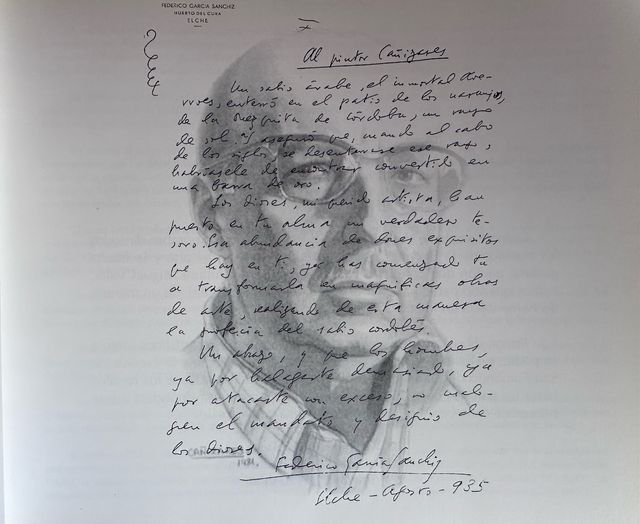 FEDERICO GARCIA SANCHIZ
HUERTO DEL CURA
ELCHE
Al pintor Cañizares
Un sabio árabe, el inmortal Ave-
rroes, enterró en el patio de los naranjos,
de la mezquita de Córdoba, un rayo
de sol. Y aseguró que, cuando al cabo
de los siglos se desenterrase ese rayo,
habríasele de encontrar convertido en
una barra de oro.
Los dioses, mi querido artista, han
puesto en tu alma un verdadero te-
soro. La abundancia de dones exquisitos
que hay en ti, ya has comenzado tu
a transformarla en magníficas obras
de arte, realizando de esta manera
la profecía del sabio cordobés.
Un abrazo, y que los hombres,
ya por halagarte demasiado, ya
por atacarte con exceso, no malo-
gren el mandato y designio de
los dioses.
CAÑIZARES
1981.
Federico García Sanchiz
Elche - Agosto - 935